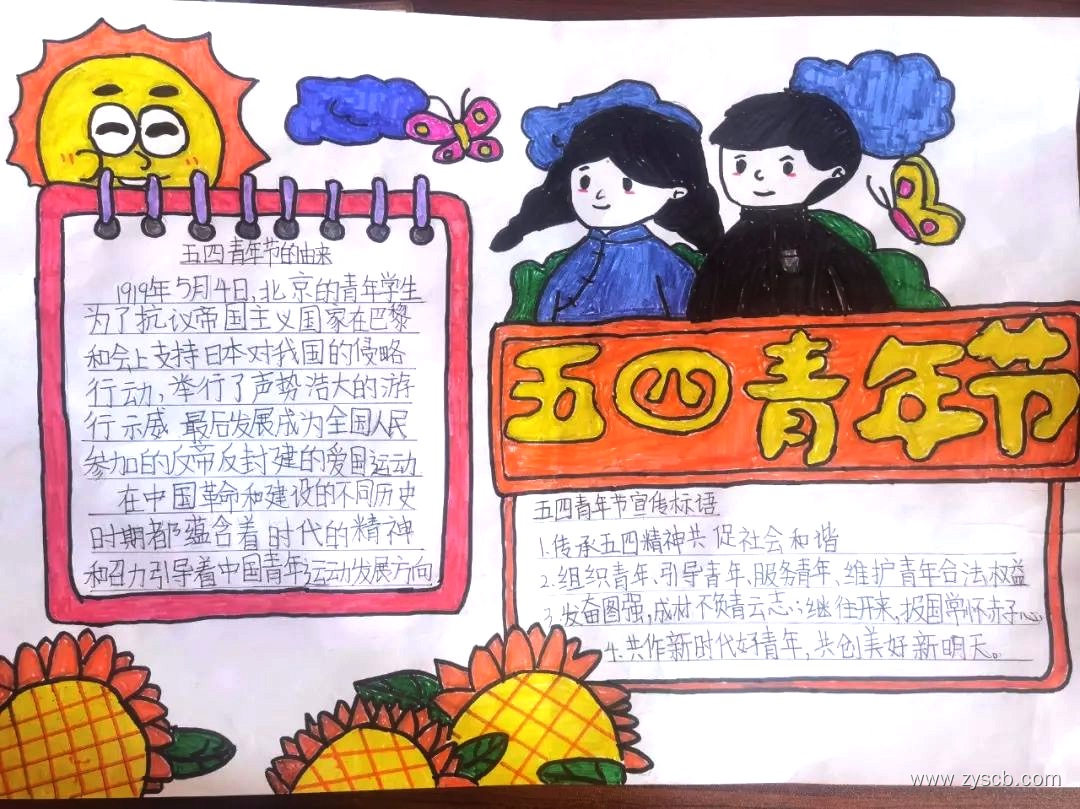 五四青年节的由来
1919年5月4日,北京的青年学生
为了抗议帝国主义国家在巴黎
和会上支持日本对我国的侵略
行动,举行了声势浩大的游
行示威 最后发展成为全国人民
参加的反帝反封建的爱国运动
在中国革命和建设的不同历史
时期都蕴含着时代的精神
和召力引导着中国青年运动发展方向
五四青年节
五四青年节宣传标语
1.传承五四精神共促社会和谐
2.组织青年、引导青年、服务青年、维护青年合法权益
3.发奋图强,成材不负青云志;继往开来,报国常怀赤子心
4.共作新时代好青年,共创美好新明天。
www.zyscb.com